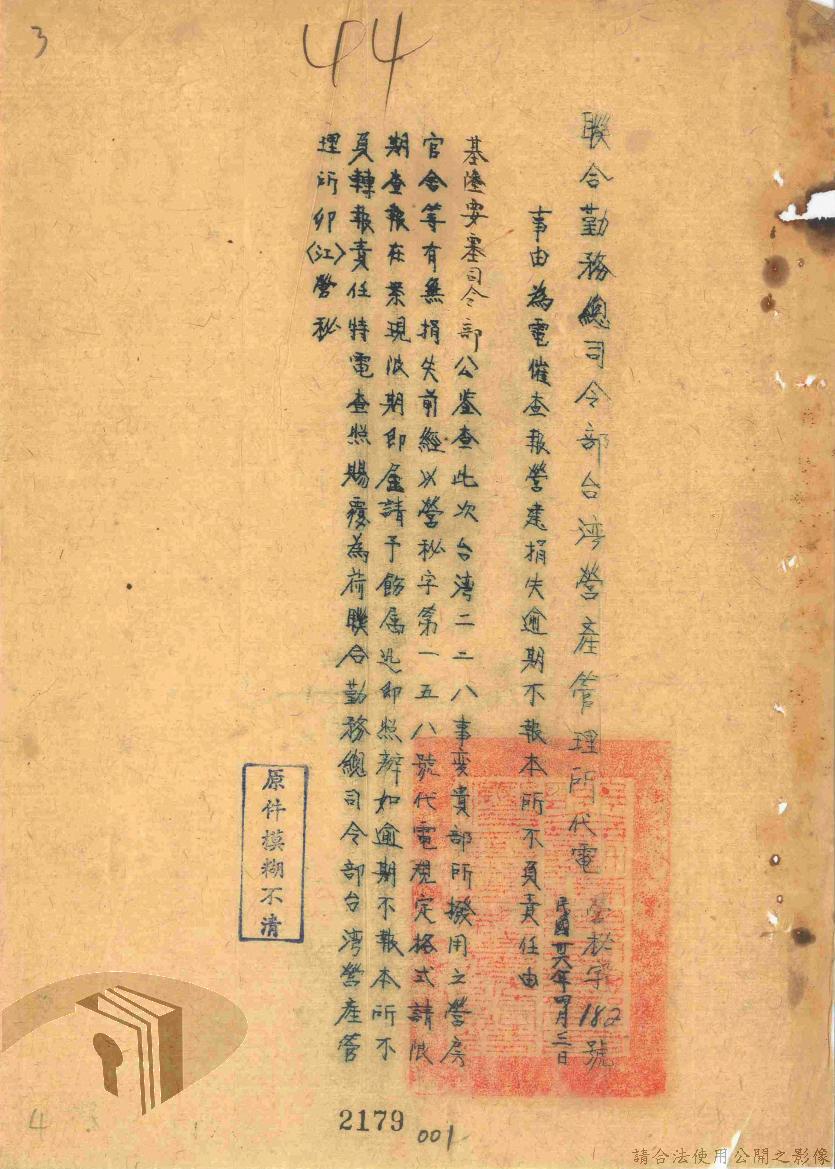 3
44
聯合勤務總司令部台湾營產管理所代電 營秘字182號
民國卅六年四月三日
事由為電催查報營建損失逾期不報本所不負責任由
基隆要塞司令部公鉴查此次台湾二二八事变貴部所撥用之營房
官舍等有無損失前經以營秘字第一五八號代電規定格式請限
期查報在案現限期即屆請予飭属迅即照辦如逾期不報本所不
負轉報責任特電查照賜覆為荷聯合勤務總司令部台湾營產管
理所卯〈江〉營秘
原件模糊不清
4
2179
001
請合法使用公開之影像